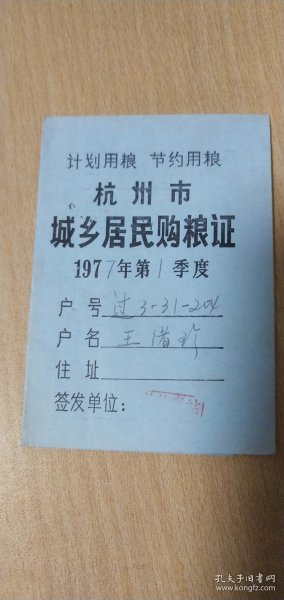 计划用粮 节约用粮
杭州市
城乡居民购粮证
1977年第1季度
户号过3-31-204
户名王
住址
签发单位:
孔夫子旧书网
www.kongfz.com